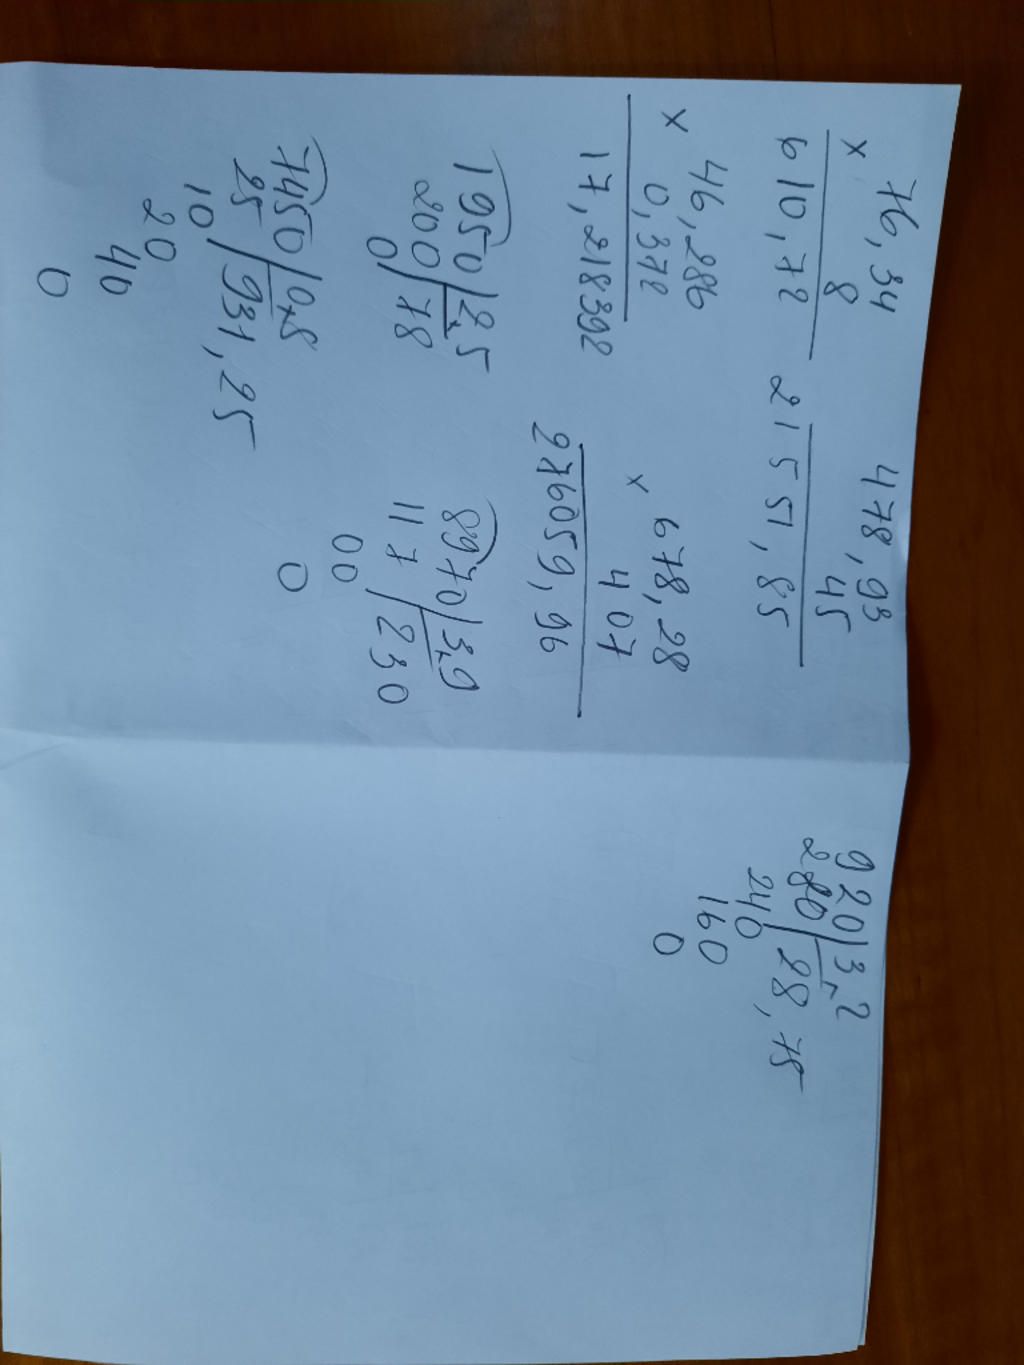 76,34
x 8
610,72
478,93
45
21551,85
46,286
x 0,372
17,218392
678,28
x 407
276059,96
1950 | 2,5
200 | 78
0
8970 | 3,9
117 | 230
00
0
7450 | 0,8
25 | 931,25
10
20
40
0
920 | 3,2
280 | 28,75
240
160
0